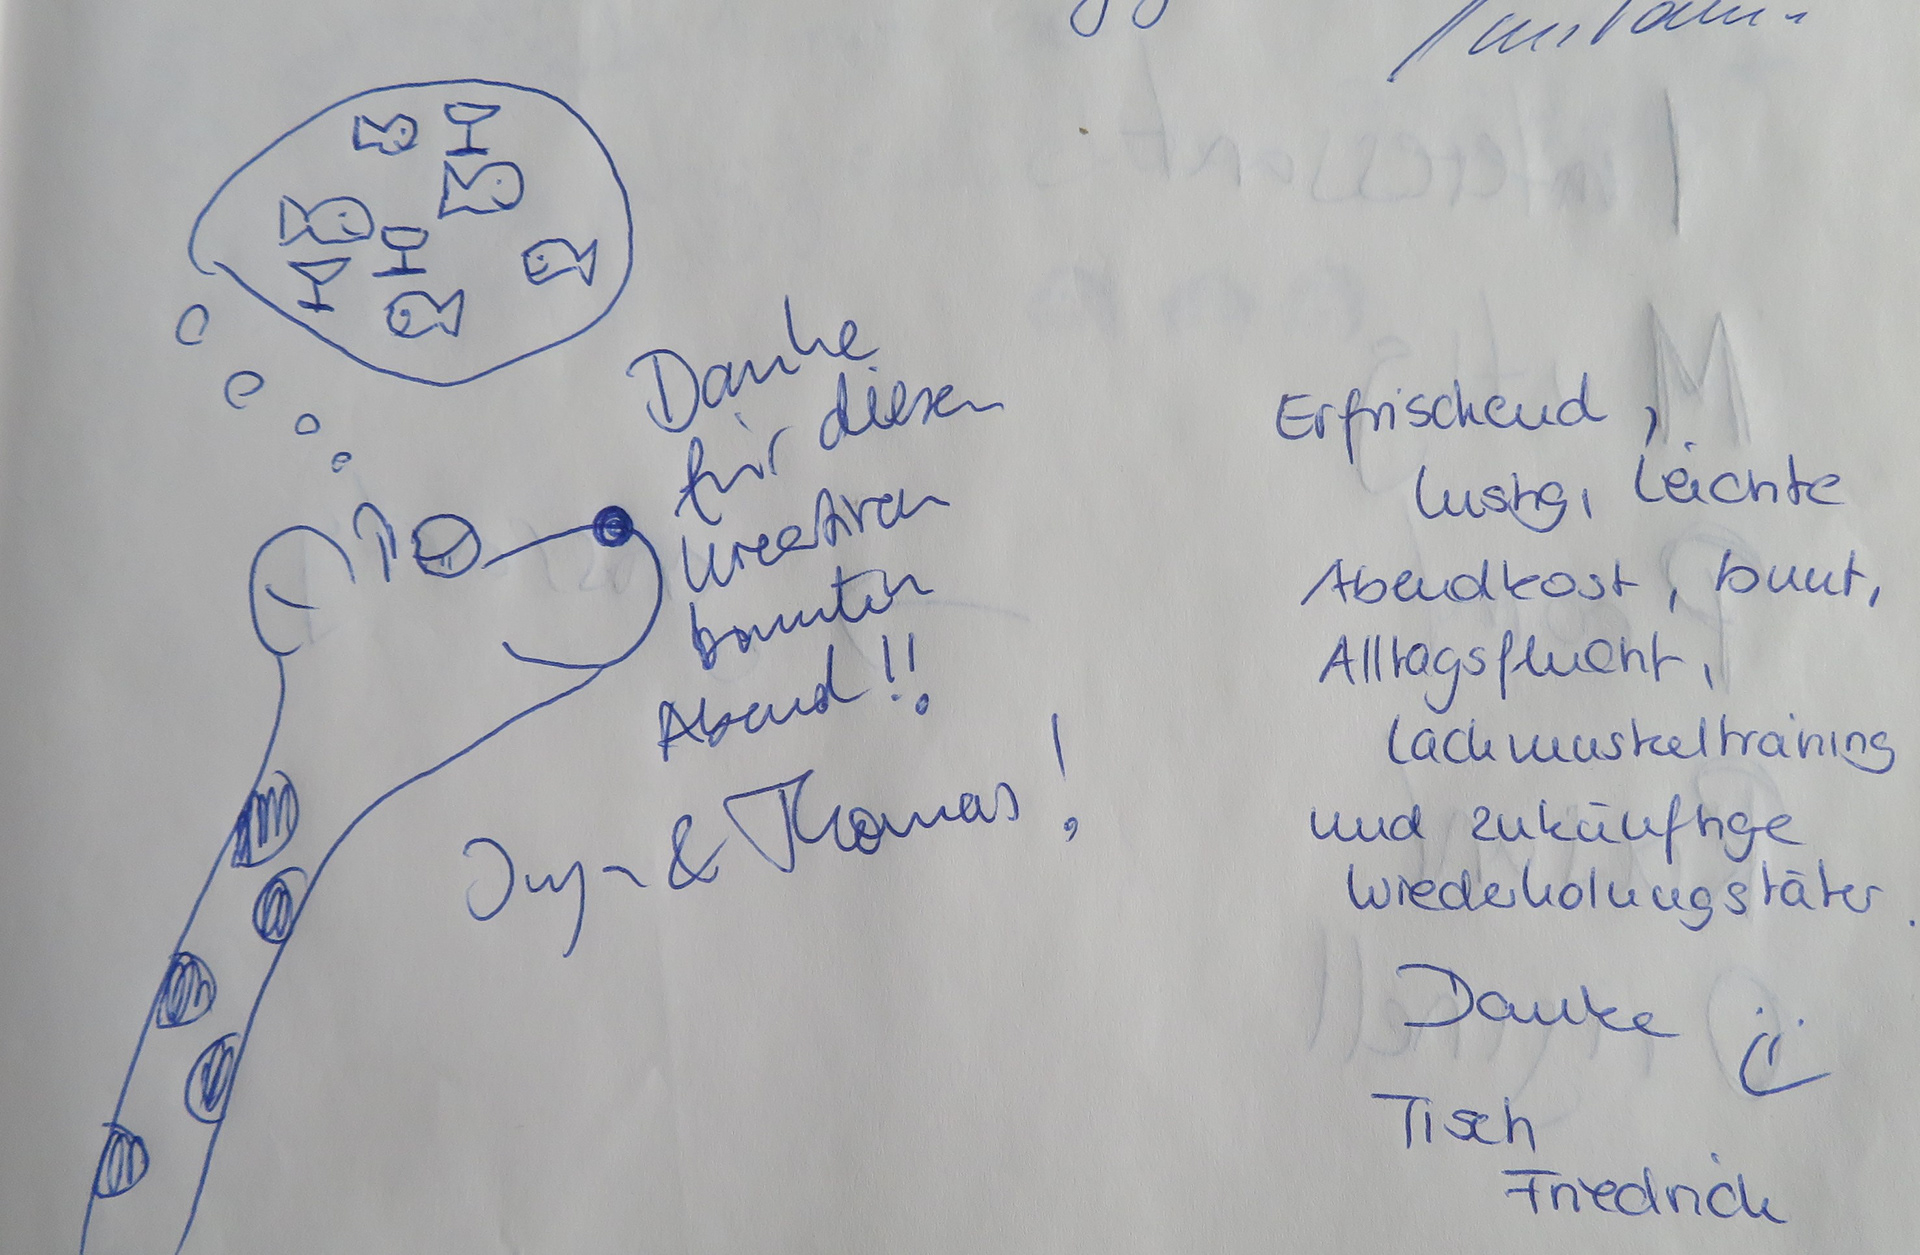 Danke
für diesen
kreativen
bunten
Abend!!
& Thomas!
Erfrischend,
lustig, leichte
Abendkost, bunt,
Alltagsflucht,
Lachmuskeltraining
und zukünftige
Wiederholungstäter.
Danke
Tisch
Friedrich